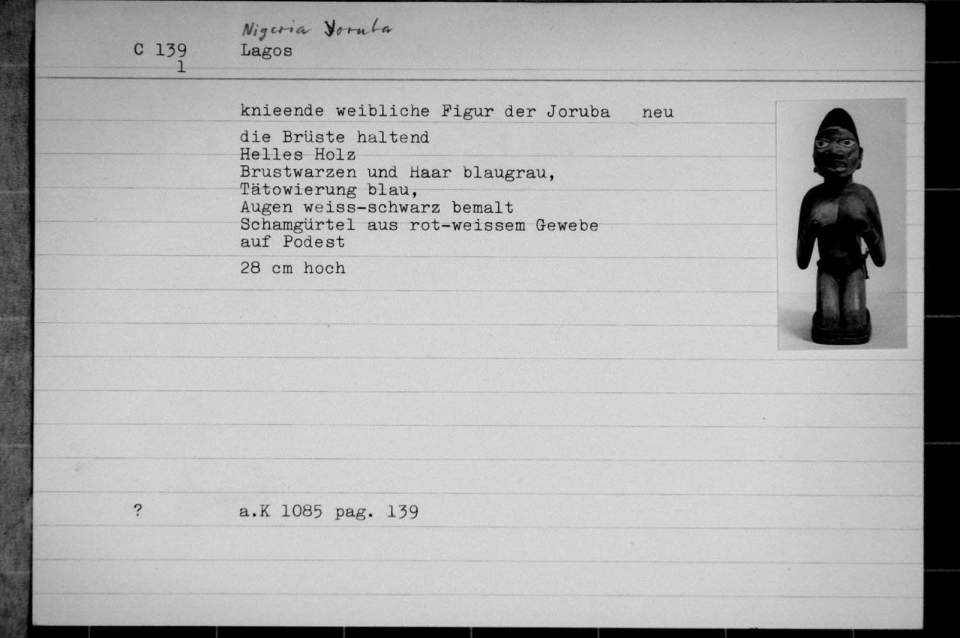 Nigeria Yoruba
C 139 Lagos
1
knieende weibliche Figur der Joruba neu
die Brüste haltend
Helles Holz
Brustwarzen und Haar blaugrau,
Tätowierung blau,
Augen weiss-schwarz bemalt
Schamgürtel aus rot-weissem Gewebe
auf Podest
28 cm hoch
? a.K 1085 pag. 139